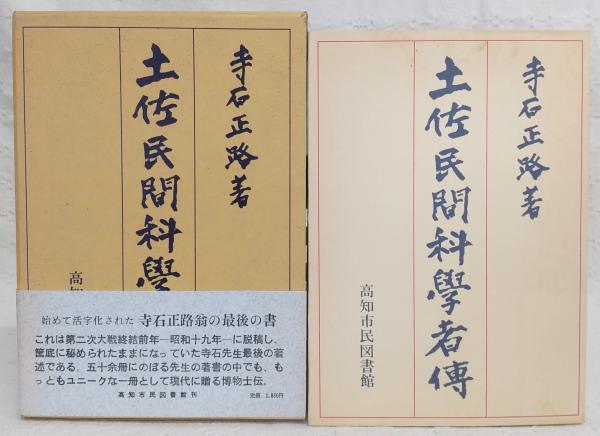 寺石正路著
土佐民間科學
高知
始めて活字化された 寺石正路翁の最後の書
これは第二次大戦終結前年―昭和十九年―に脱稿し、
筐底に秘められたままになっていた寺石先生最後の著
述である。五十余冊にのぼる先生の著書の中でも、も
っともユニークな一冊として現代に贈る博物士伝。
高知市民図書館刊
定価 1,800円
寺石正路著
土佐民間科學者傳
高知市民図書館